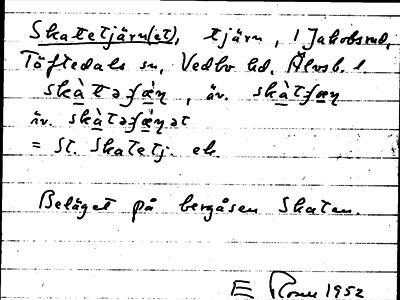 Skatetjärn(et), tjärn, i Jakobsrud,
Töftedals sn, Vedbo hd, Älvsb. l
skàtəʃæ̀ŋ, äv. skàtʃæŋ
äv. skàtəʃæ̀ŋət
= St. Skatetj. ek.
Beläget på bergåsen Skaten.
E 1952